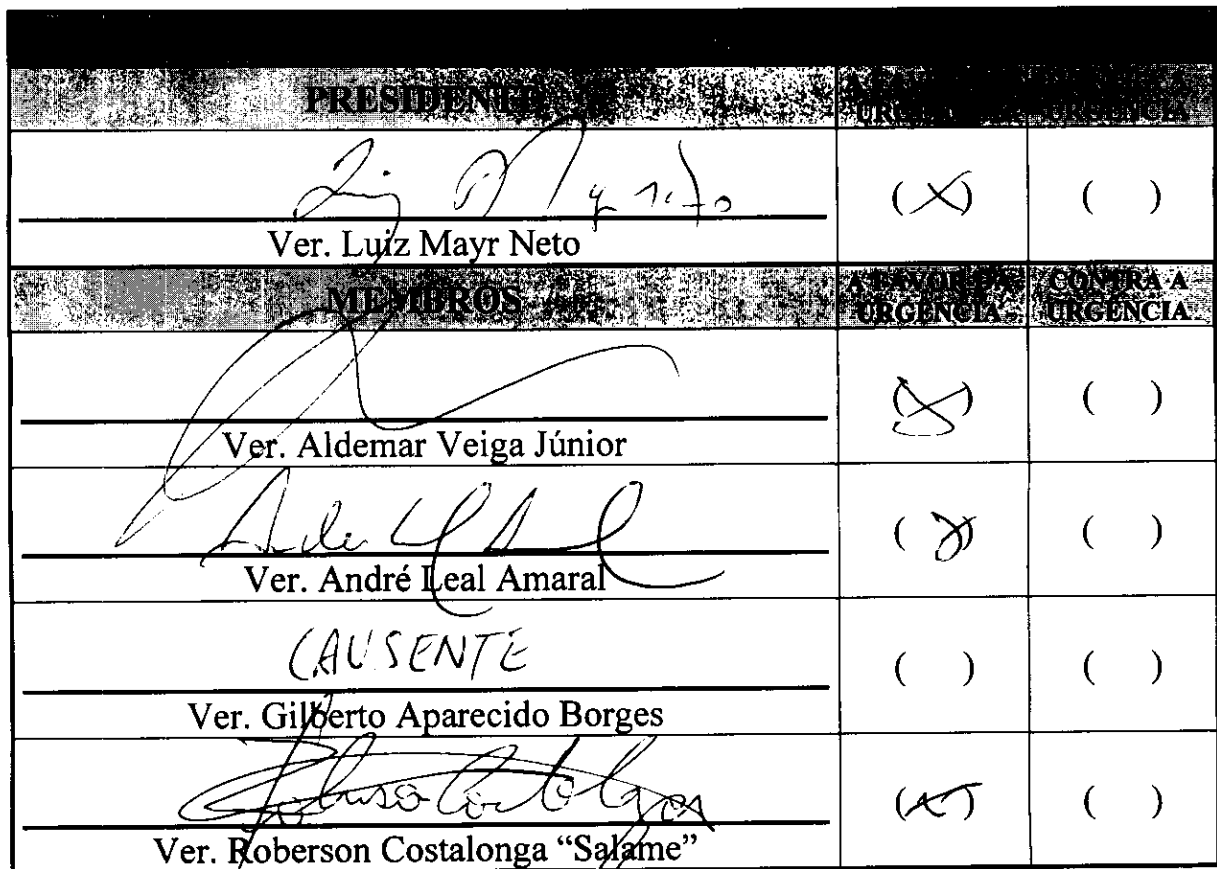 PRESIDENTE
URGÊNCIA
( X ) ( )
Ver. Luiz Mayr Neto
MEMBROS A FAVOR DA URGÊNCIA CONTRA A URGÊNCIA
( X ) ( )
Ver. Aldemar Veiga Júnior
( X ) ( )
Ver. André Leal Amaral
(AUSENTE ( ) ( )
Ver. Gilberto Aparecido Borges
( X ) ( )
Ver. Roberson Costalonga “Salame”